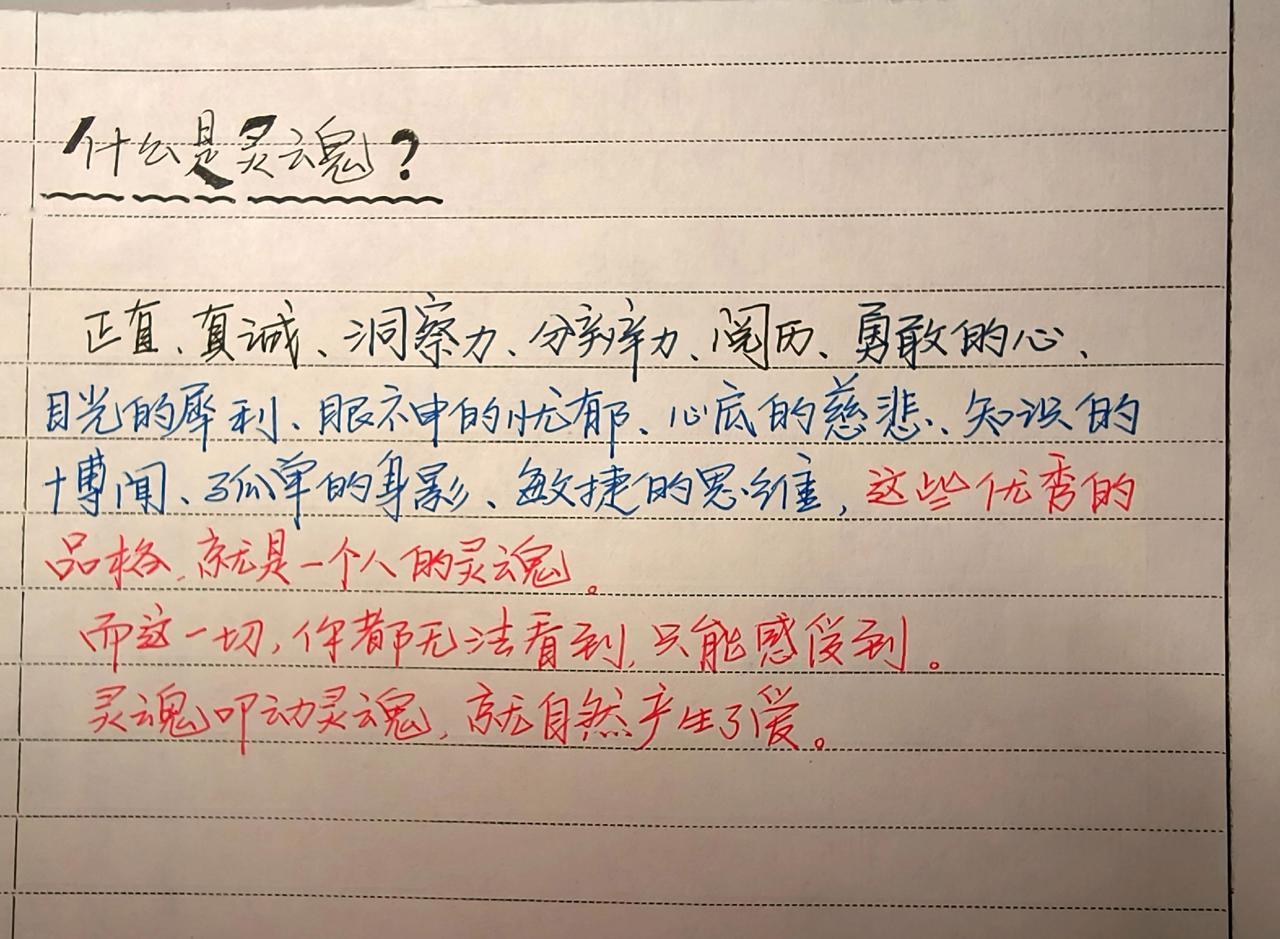 什么是灵魂?
正直、真诚、洞察力、分辨力、阅历、勇敢的心、
目光的犀利、眼神的忧郁、心底的慈悲、知识的
博闻、孤单的身影、敏捷的思维,这些优秀的
品格,就是一个人的灵魂。
而这一切,你都无法看到,只能感受到。
灵魂叩动灵魂,就自然产生了爱。